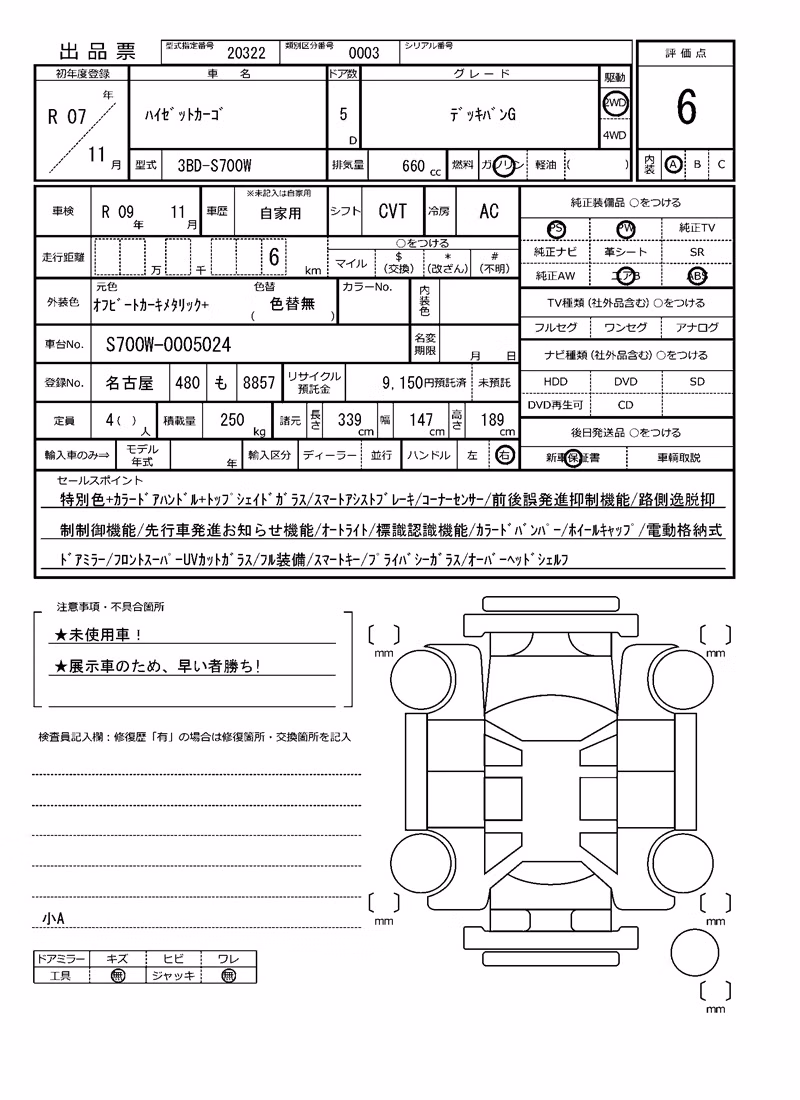 出品票 型式指定番号 20322 類別区分番号 0003 シリアル番号
評価点
初年度登録 車名 ドア数 グレード 駆動
R 07 年 11 月 ハイゼットカーゴ 5 D デッキバンG 2WD 4WD
6
型式 3BD-S700W 排気量 660 cc 燃料 ガソリン 軽油 ( )
内装 A B C
車検 R 09 年 11 月 車歴 ※未記入は自家用 自家用 シフト CVT 冷房 AC
純正装備品 ○をつける
PS PW 純正TV
純正ナビ 革シート SR
純正AW エアB ABS
走行距離 万 千 6 km ○をつける
マイル $(交換) *(改ざん) #(不明)
外装色 元色 オフビートカーキメタリック+ 色替 ( 色替無 ) カラーNo. 内装色
TV種類(社外品含む) ○をつける
フルセグ ワンセグ アナログ
車台No. S700W-0005024 名変期限 月 日
ナビ種類(社外品含む) ○をつける
HDD DVD SD
DVD再生可 CD
登録No. 名古屋 480 も 8857 リサイクル預託金 9,150円預託済 未預託
定員 4( ) 人 積載量 250 kg 諸元 長さ 339 cm 幅 147 cm 高さ 189 cm
後日発送品 ○をつける
新車保証書 車輌取説
輸入車のみ⇒ モデル年式 年 輸入区分 ディーラー 並行 ハンドル 左 右
セールスポイント
特別色+カラードアハンドル+トップシェイドガラス/スマートアシストブレーキ/コーナーセンサー/前後誤発進抑制機能/路側逸脱抑
制制御機能/先行車発進お知らせ機能/オートライト/標識認識機能/カラードバンパー/ホイールキャップ/電動格納式
ドアミラー/フロントスーパーUVカットガラス/フル装備/スマートキー/プライバシーガラス/オーバーヘッドシェルフ
注意事項・不具合箇所
★未使用車！
★展示車のため、早い者勝ち!
mm mm
検査員記入欄：修復歴「有」の場合は修復箇所・交換箇所を記入
小A
mm mm
ドアミラー キズ ヒビ ワレ
工具 無 ジャッキ 無
mm